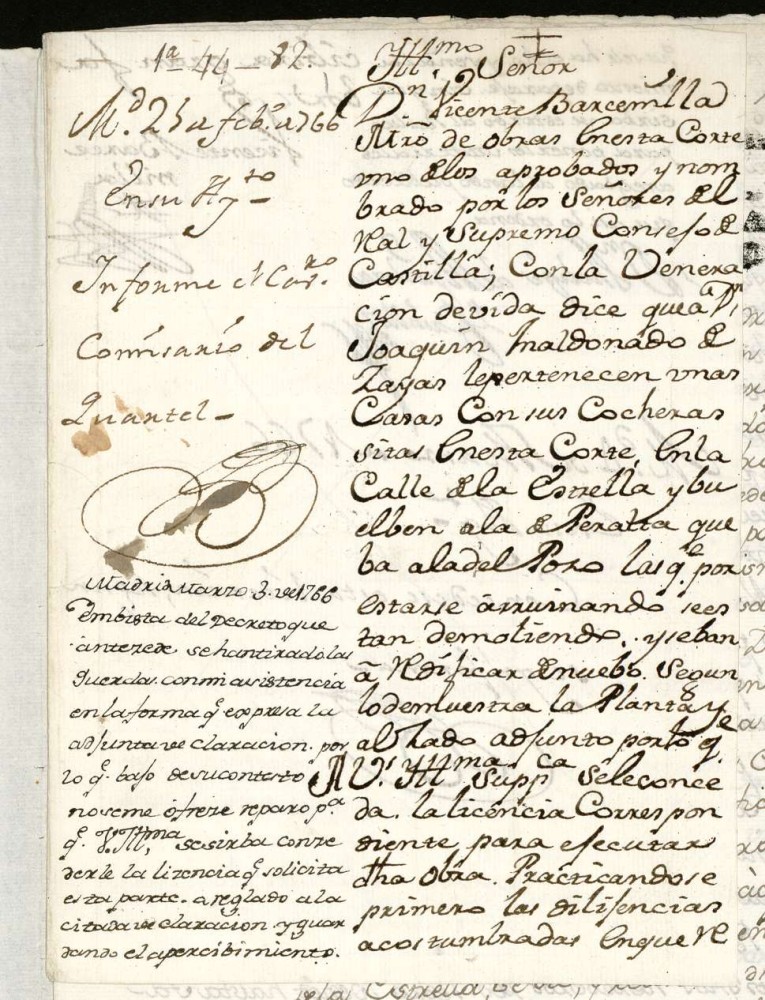 1ª 44 - 82.
M.d 25 de feb.º de 1766
En su Ay.to
Informe el Cav.ro
Comisario del
Quartel -
Madrid Marzo 3. de 1766
Em bista del Decreto que
antezede se han tirado las
Querdas con mi asistencia
en la forma q.e expresa la
adjunta declaracion. por
lo q.e bajo de su contesto
no se me ofreze reparo p.a
q.e V. Ill.ma se sirba conze
derle la lizencia q.e solicita
esta parte. areglado a la
citada declaracion y guar
dando el apercibimiento.
Ill.mo Señor
D.n Vicente Barcenilla
Mro de obras en esta Corte
uno de los aprobados y nom
brado por los Señores del
Real y Supremo Consejo de
Castilla; Con la Venera
cion devida dice que a D.n
Joaquin Maldonado de
Zayas le pertenecen unas
Casas Con sus Cocheras
sitas en esta Corte, en la
Calle de la Estrella y bu
elben a la de Peralta que
ba a la del Pozo las q.e por
estarse arruinando se es
tan demoliendo. y se ban
a Redificar de nuebo. Segun
lo demuestra la Planta y
alzado adjunto por lo q.e
A V.S. Ill.ma Supp.ca Se le conce
da. la licencia Correspon
diente para ejecutar
dha obra. Practicandose
primero las dilijencias
acostumbradas en que Re